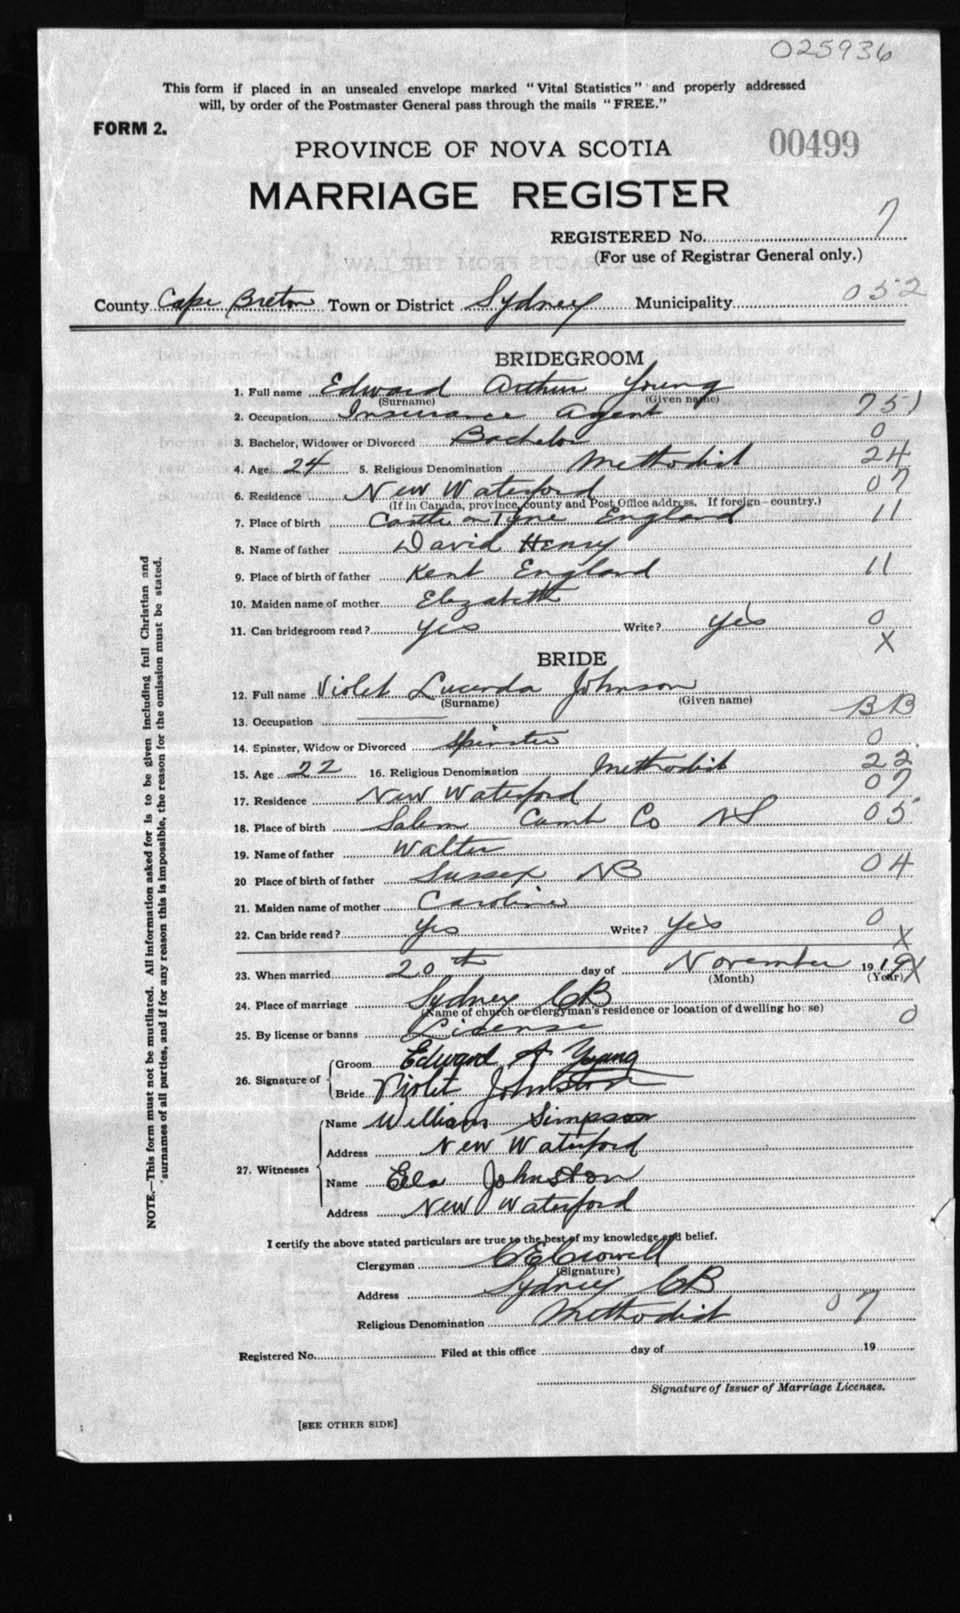 025936
This form if placed in an unsealed envelope marked "Vital Statistics" and properly addressed
will, by order of the Postmaster General pass through the mails "FREE."
FORM 2.
PROVINCE OF NOVA SCOTIA
00499
MARRIAGE REGISTER
REGISTERED No. 7
(For use of Registrar General only.)
County Cape Breton Town or District Sydney Municipality 052
BRIDEGROOM
1. Full name Edward Arthur Young
(Surname) (Given name)
2. Occupation Insurance Agent 751
3. Bachelor, Widower or Divorced Bachelor 0
4. Age 24 5. Religious Denomination Methodist 24
6. Residence New Waterford 07
(If in Canada, province, county and Post Office address. If foreign—country.)
7. Place of birth Castle on Tyne England 11
8. Name of father David Henry
9. Place of birth of father Kent England 11
10. Maiden name of mother Elizabeth
11. Can bridegroom read? yes Write? yes 0
X
BRIDE
12. Full name Violet Lucinda Johnson
(Surname) (Given name)
13. Occupation BB
14. Spinster, Widow or Divorced Spinster 0
15. Age 22 16. Religious Denomination Methodist 22
17. Residence New Waterford 07
18. Place of birth Salem Cumb Co NS 05
19. Name of father Walter
20 Place of birth of father Sussex NB 04
21. Maiden name of mother Caroline
22. Can bride read? yes Write? yes 0
X
23. When married 20th day of November 1919 X
(Month) (Year)
24. Place of marriage Sydney CB
(Name of church or clergyman's residence or location of dwelling house) 0
25. By license or banns License
26. Signature of Groom Edward A Young
Bride Violet Johnston
27. Witnesses
Name William Simpson
Address New Waterford
Name Ella Johnston
Address New Waterford
I certify the above stated particulars are true to the best of my knowledge and belief.
Clergyman C E Crowell
(Signature)
Address Sydney CB
Religious Denomination Methodist 07
Registered No. Filed at this office day of 19
Signature of Issuer of Marriage Licenses.
[SEE OTHER SIDE]
NOTE.—This form must not be mutilated. All information asked for is to be given including full Christian and
surnames of all parties, and if for any reason this is impossible, the reason for the omission must be stated.